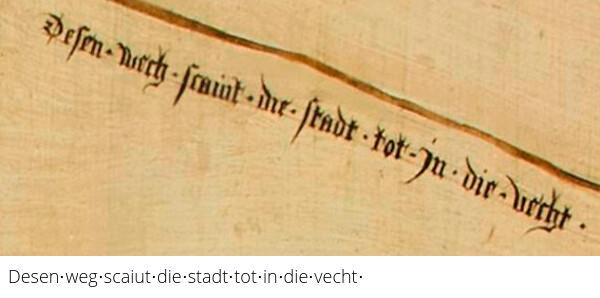 Desen·wech·scaiut·die·stadt·tot·jn·die·vecht·
Desen·weg·scaiut·die·stadt·tot·in·die·vecht·